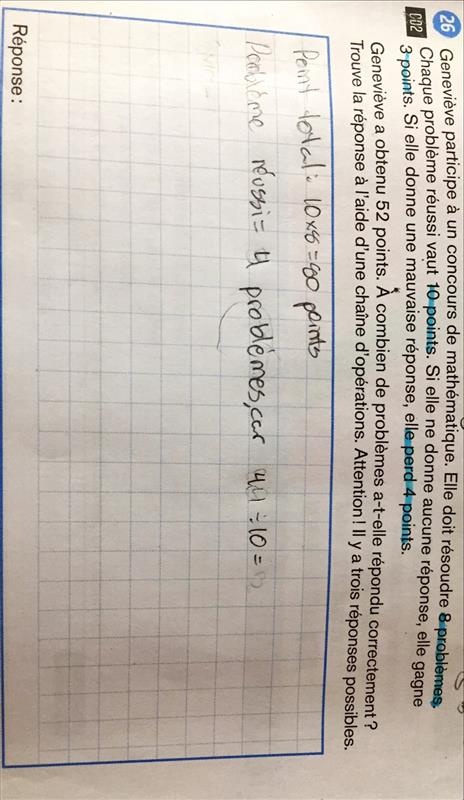 26 Geneviève participe à un concours de mathématique. Elle doit résoudre 8 problèmes.
CD2 Chaque problème réussi vaut 10 points. Si elle ne donne aucune réponse, elle gagne
3 points. Si elle donne une mauvaise réponse, elle perd 4 points.
Geneviève a obtenu 52 points. À combien de problèmes a-t-elle répondu correctement?
Trouve la réponse à l'aide d'une chaîne d'opérations. Attention! Il y a trois réponses possibles.
Point total: 10×8=80 points
Problème réussi= 4 problèmes, car 44÷10=
Réponse: